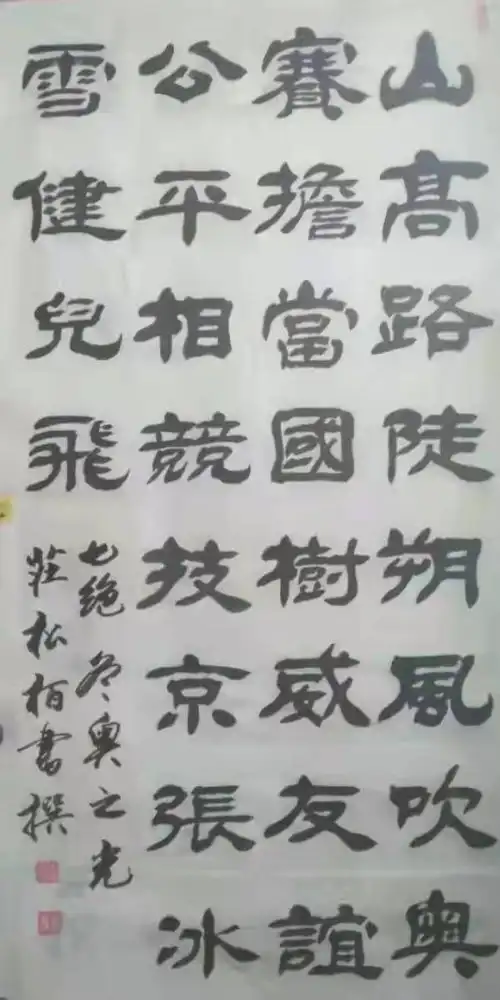 山高路陡朔風吹奧
賽擔當國樹威友誼
公平相競技京張冰
雪健兒飛
七絶 冬奧之光
莊松柏書撰